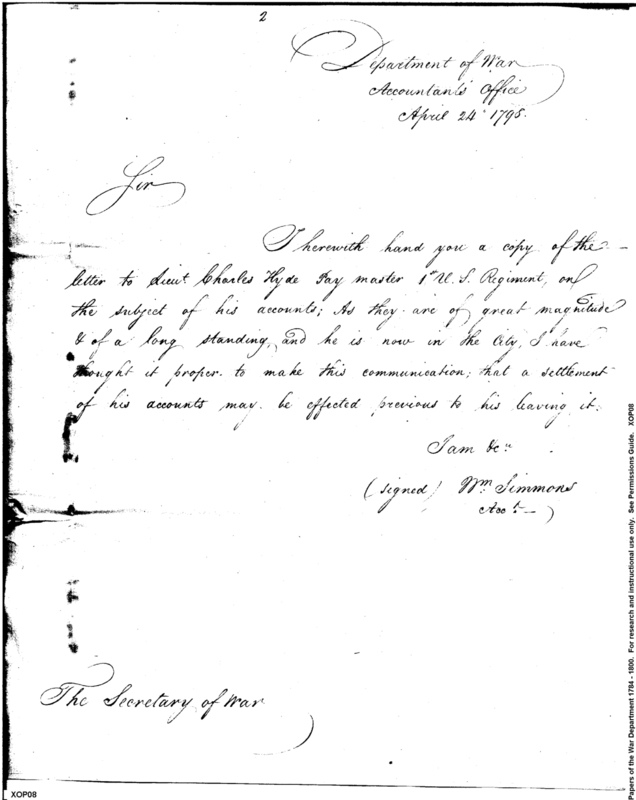 2
Department of War
Accountants Office
April 24th 1795.
Sir
I herewith hand you a copy of the
letter to Lieut. Charles Hyde Pay master 1st U. S. Regiment, on
the subject of his accounts; As they are of great magnitude
& of a long standing, and he is now in the City, I have
thought it proper to make this communication; that a settlement
of his accounts may be effected previous to his leaving it.
I am &c.
(signed) Wm Simmons
Acct.
The Secretary of War
XOP08
Papers of the War Department 1784 - 1800. For research and instructional use only. See Permissions Guide. XOP08